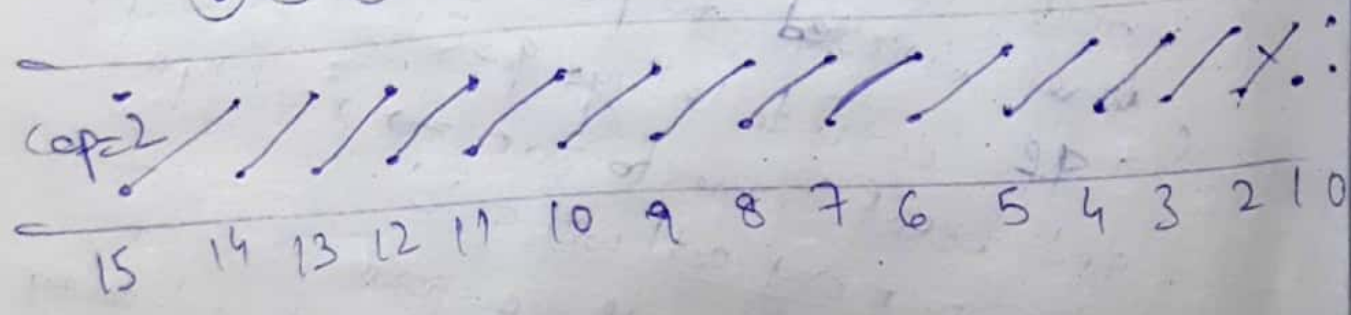 cap=2
15 14 13 12 11 10 9 8 7 6 5 4 3 2 1 0